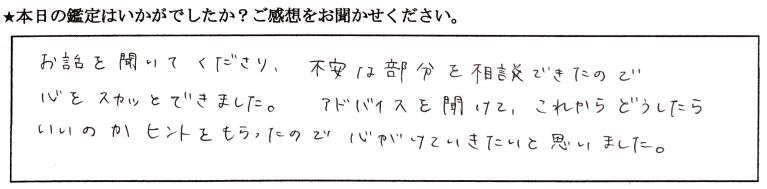 ★本日の鑑定はいかがでしたか？ご感想をお聞かせください。
お話を聞いてくださり、不安な部分を相談できたので
心をスカッとできました。アドバイスを聞けて、これからどうしたら
いいのかヒントをもらったので心がけていきたいと思いました。